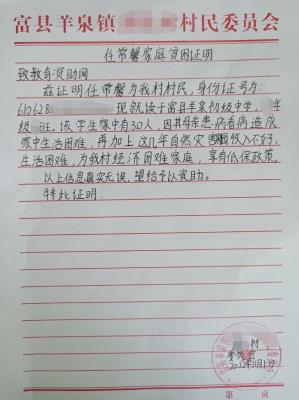 富县羊泉镇 村民委员会
任常馨家庭贫困证明
致教育资助网
兹证明任常馨为我村村民,身份证号为:
610628 现就读于富县羊泉初级中学, 年
级 班。该学生家中有30人,因其母亲患病看病造成
家中生活困难,再加上这几年自然灾害收入不好,
生活困难,为我村经济困难家庭,享有低保政策。
以上信息真实无误,望给予以资助。
特此证明.
村
委员会
2022年11月1日
第 页